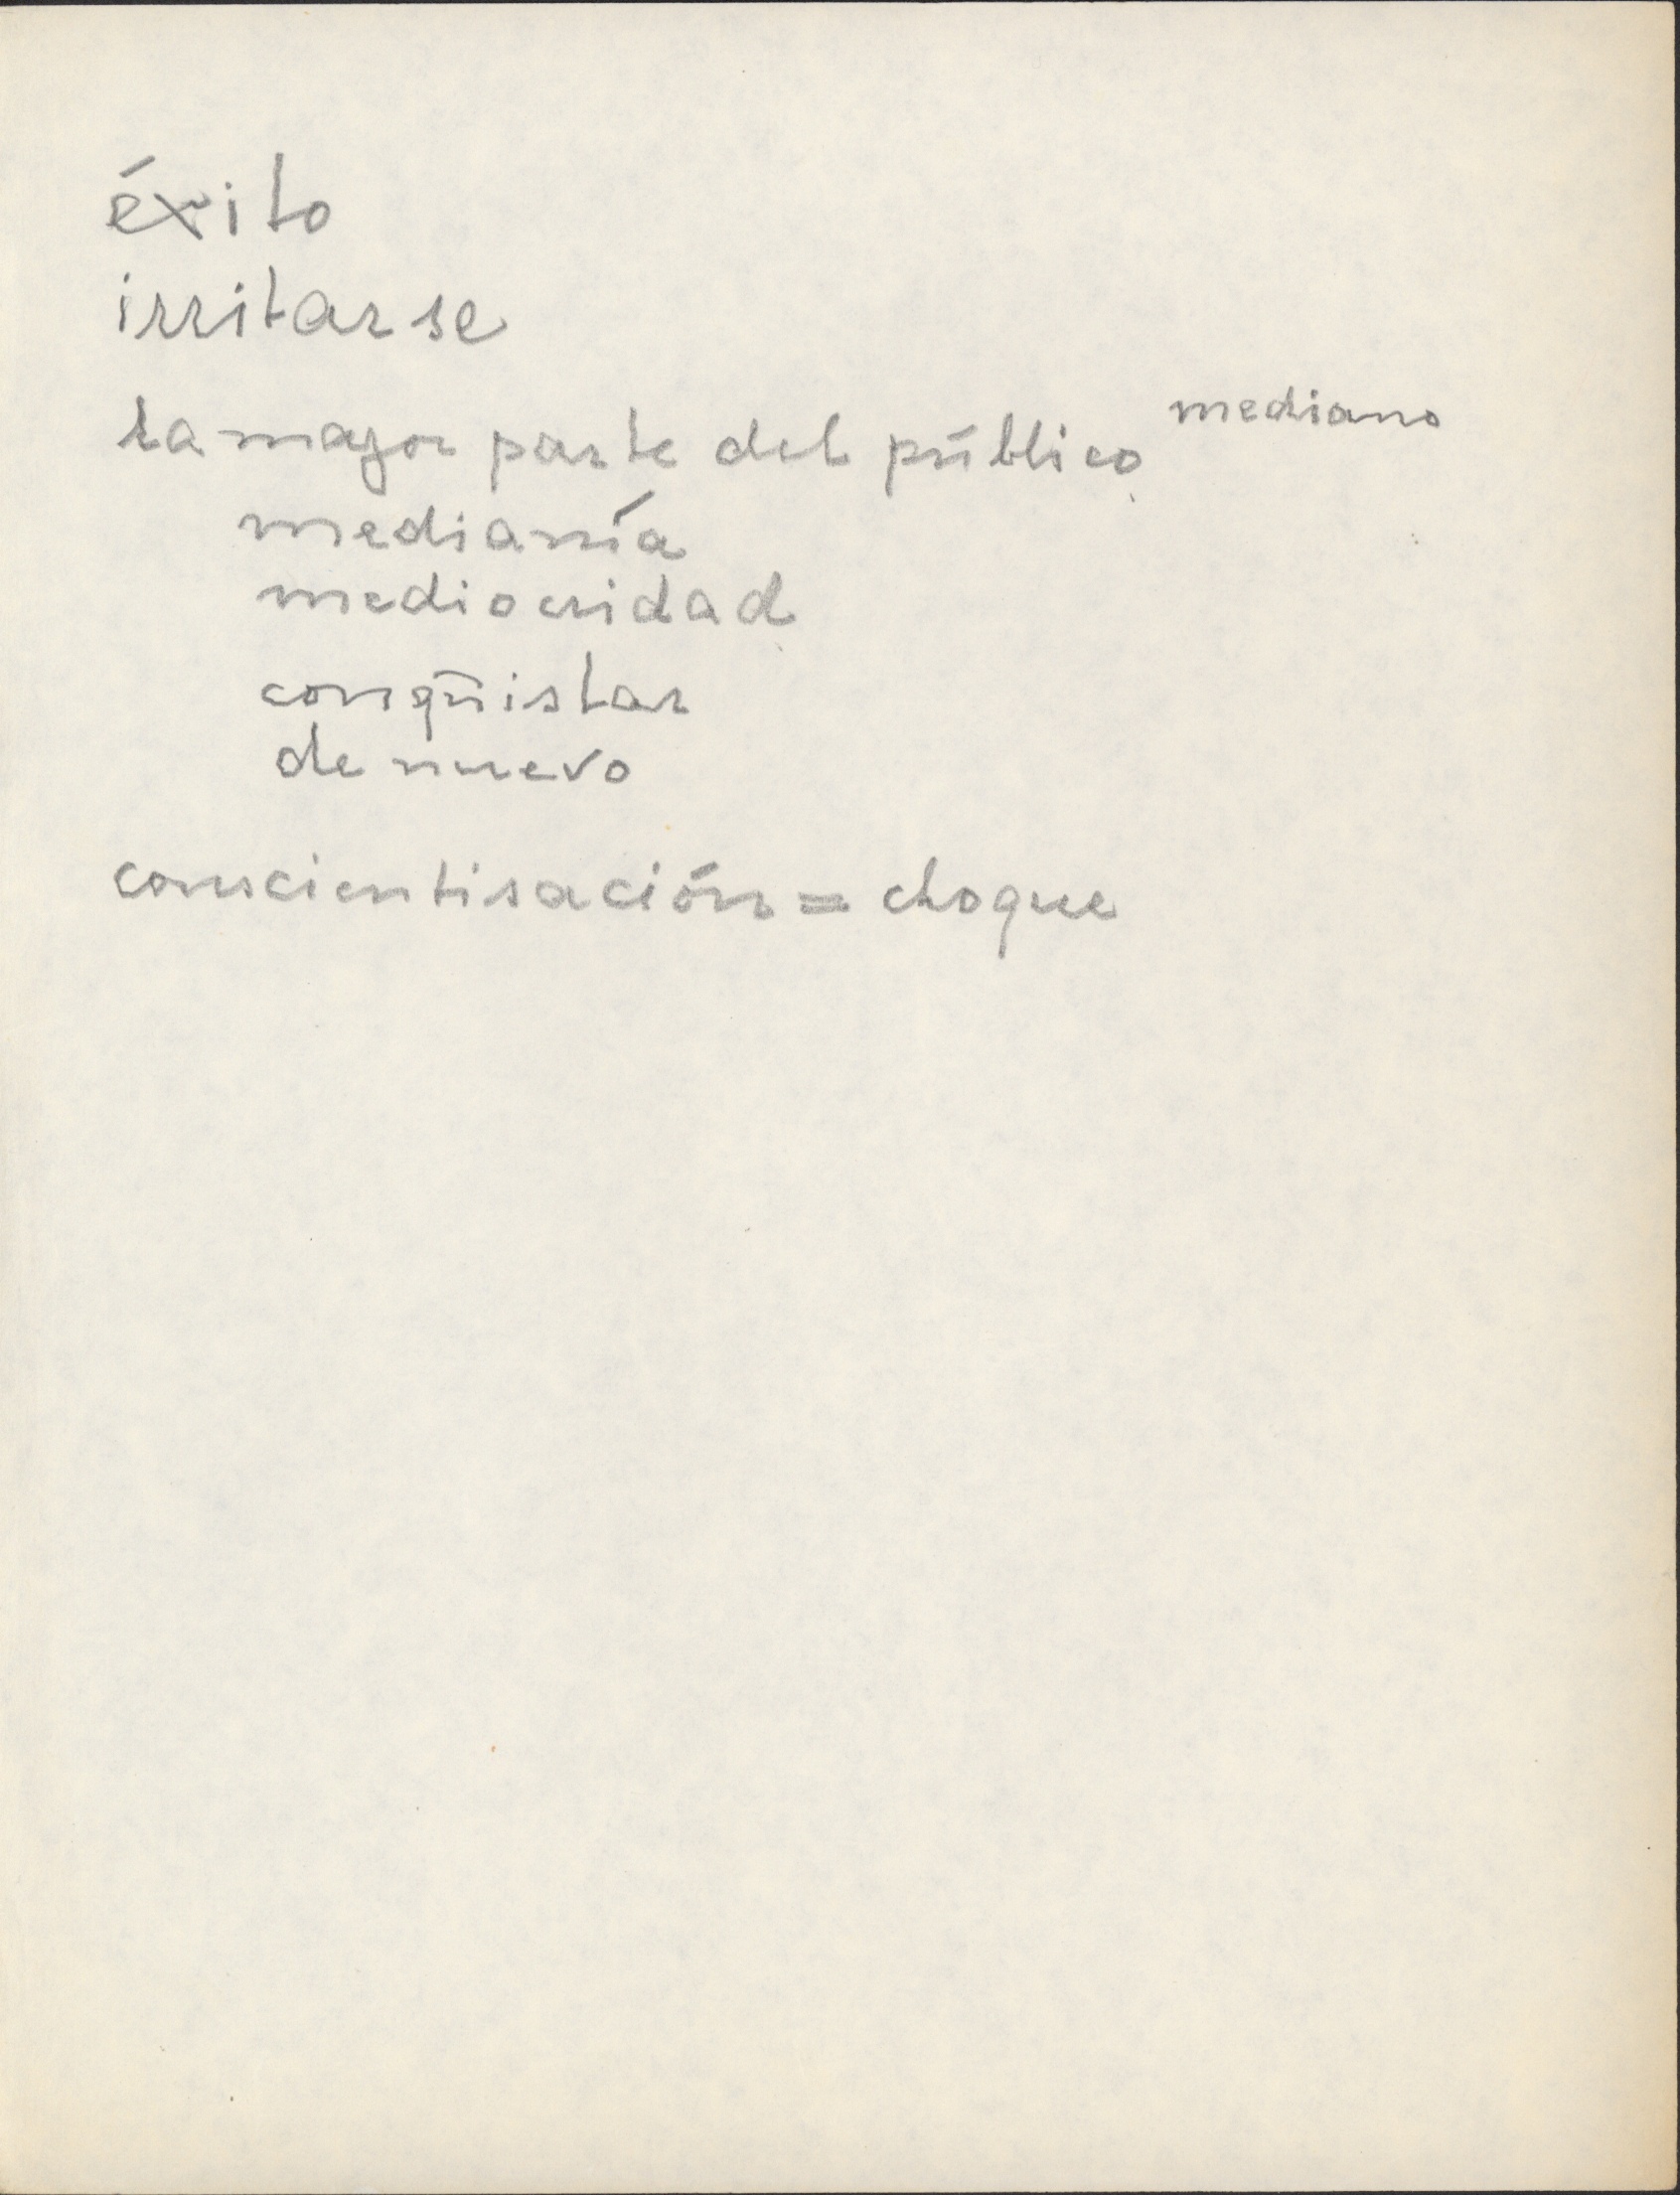 éxito
irritarse
la mayor parte del público mediano
medianía
mediocridad
conqüistar
de nuevo
conscientisación = choque